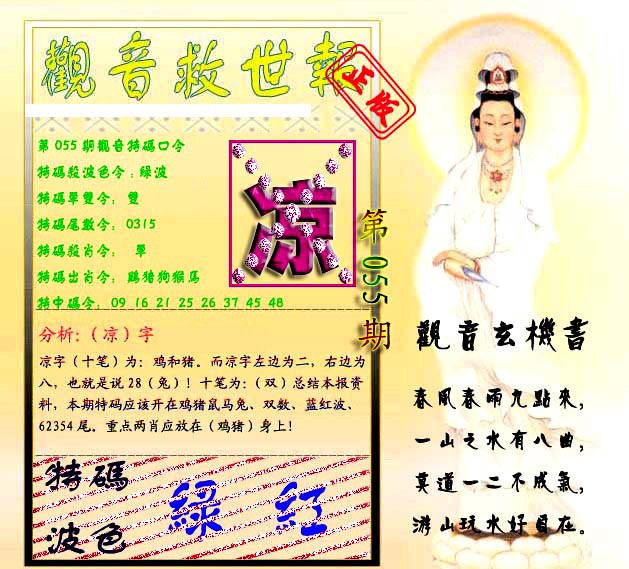 觀音救世報
正版
第055期觀音特碼口令
特碼殺波色令：綠波
特碼單雙令： 雙
特碼尾數令： 0315
特碼殺肖令： 單
特碼出肖令： 鷄猪狗猴馬
特中碼令： 09 16 21 25 26 37 45 48
凉
第055期
分析:（凉）字
凉字（十笔）为：鸡和猪。而凉字左边为二，右边为
八，也就是说28（兔）！十笔为：（双）总结本报资
料，本期特码应该开在鸡猪鼠马兔、双数、蓝红波、
62354尾。重点两肖应放在（鸡猪）身上！
特碼
波色
綠 紅
觀音玄機書
春風春雨九點來，
一山之水有八曲，
莫道一二不成氣，
游山玩水好自在。